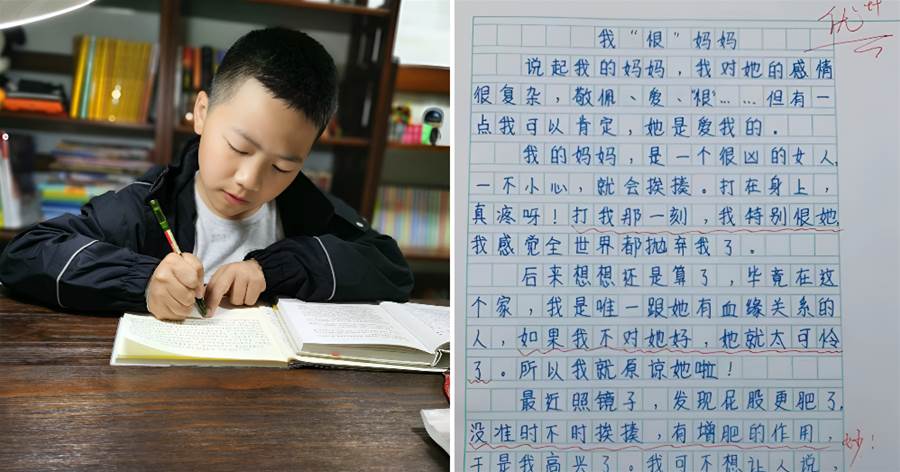 优++
我“恨”妈妈
说起我的妈妈,我对她的感情
很复杂,敬佩、爱、“恨”……但有一
点我可以肯定,她是爱我的。
我的妈妈,是一个很凶的女人,
一不小心,就会挨揍。打在身上,
真疼呀!打我那一刻,我特别恨她,
我感觉全世界都抛弃我了。
后来想想还是算了,毕竟在这
个家,我是唯一跟她有血缘关系的
人,如果我不对她好,她就太可怜
了。所以我就原谅她啦!
最近照镜子,发现屁股更肥了,
没准时不时挨揍,有增肥的作用,
妙!
于是我高兴了。我可不想让人说